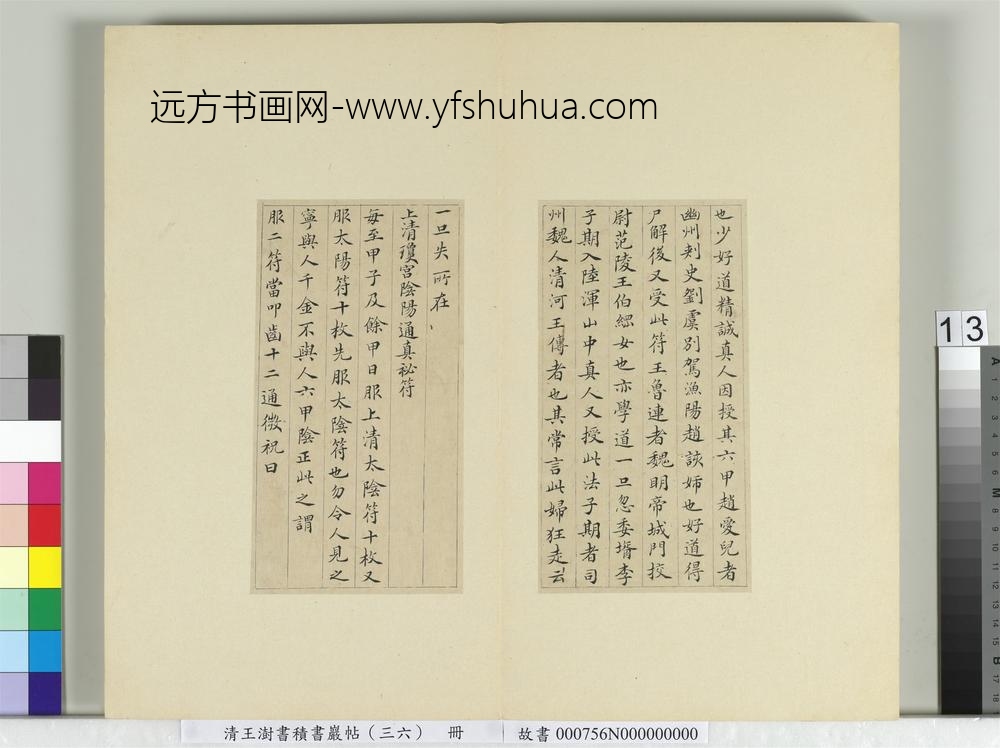 远方书画网-www.yfshuhua.com
也少好道精誠真人因授其六甲趙愛兒者
幽州刺史劉虞別駕漁陽趙該姊也好道得
尸解後又受此符王魯連者魏明帝城門挍
尉范陵王伯綱女也亦學道一旦忽委壻李
子期入陸渾山中真人又授此法子期者司
州魏人清河王傅者也其常言此婦狂走云
一旦失所在
上清瓊宮陰陽通真祕符
每至甲子及餘甲日服上清太陰符十枚又
服太陽符十枚先服太陰符也勿令人見之
寧與人千金不與人六甲陰正此之謂
服二符當叩齒十二通微祝曰
13
清王澍書積書巖帖（三六） 冊
故書 000756N000000000